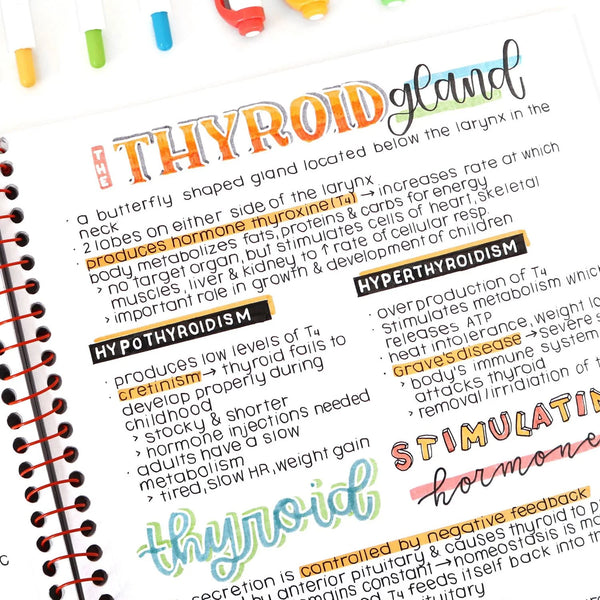 THE THYROID gland
· a butterfly shaped gland located below the larynx in the
neck
· 2 lobes on either side of the larynx
· produces hormone thyroxine (T4) → increases rate at which
body metabolizes fats, proteins & carbs for energy
> no target organ, but stimulates cells of heart, skeletal
muscles, liver & kidney to ↑ rate of cellular resp.
> important role in growth & development of children
HYPOTHYROIDISM
· produces low levels of T4
· cretinism → thyroid fails to
develop properly during
childhood
> stocky & shorter
> hormone injections needed
· adults have a slow
metabolism
> tired, slow HR, weight gain
HYPERTHYROIDISM
· overproduction of T4
· stimulates metabolism which
releases ATP
· heat intolerance, weight lo
· Grave's disease → severe s
> body's immune system
attacks thyroid
> removal/irridiation of t
thyroid
STIMULATIN
hormone
secretion is controlled by negative feedback
by anterior pituitary & causes thyroid to p
remains constant → homeostasis is ma
T4 feeds itself back into th
pituitary